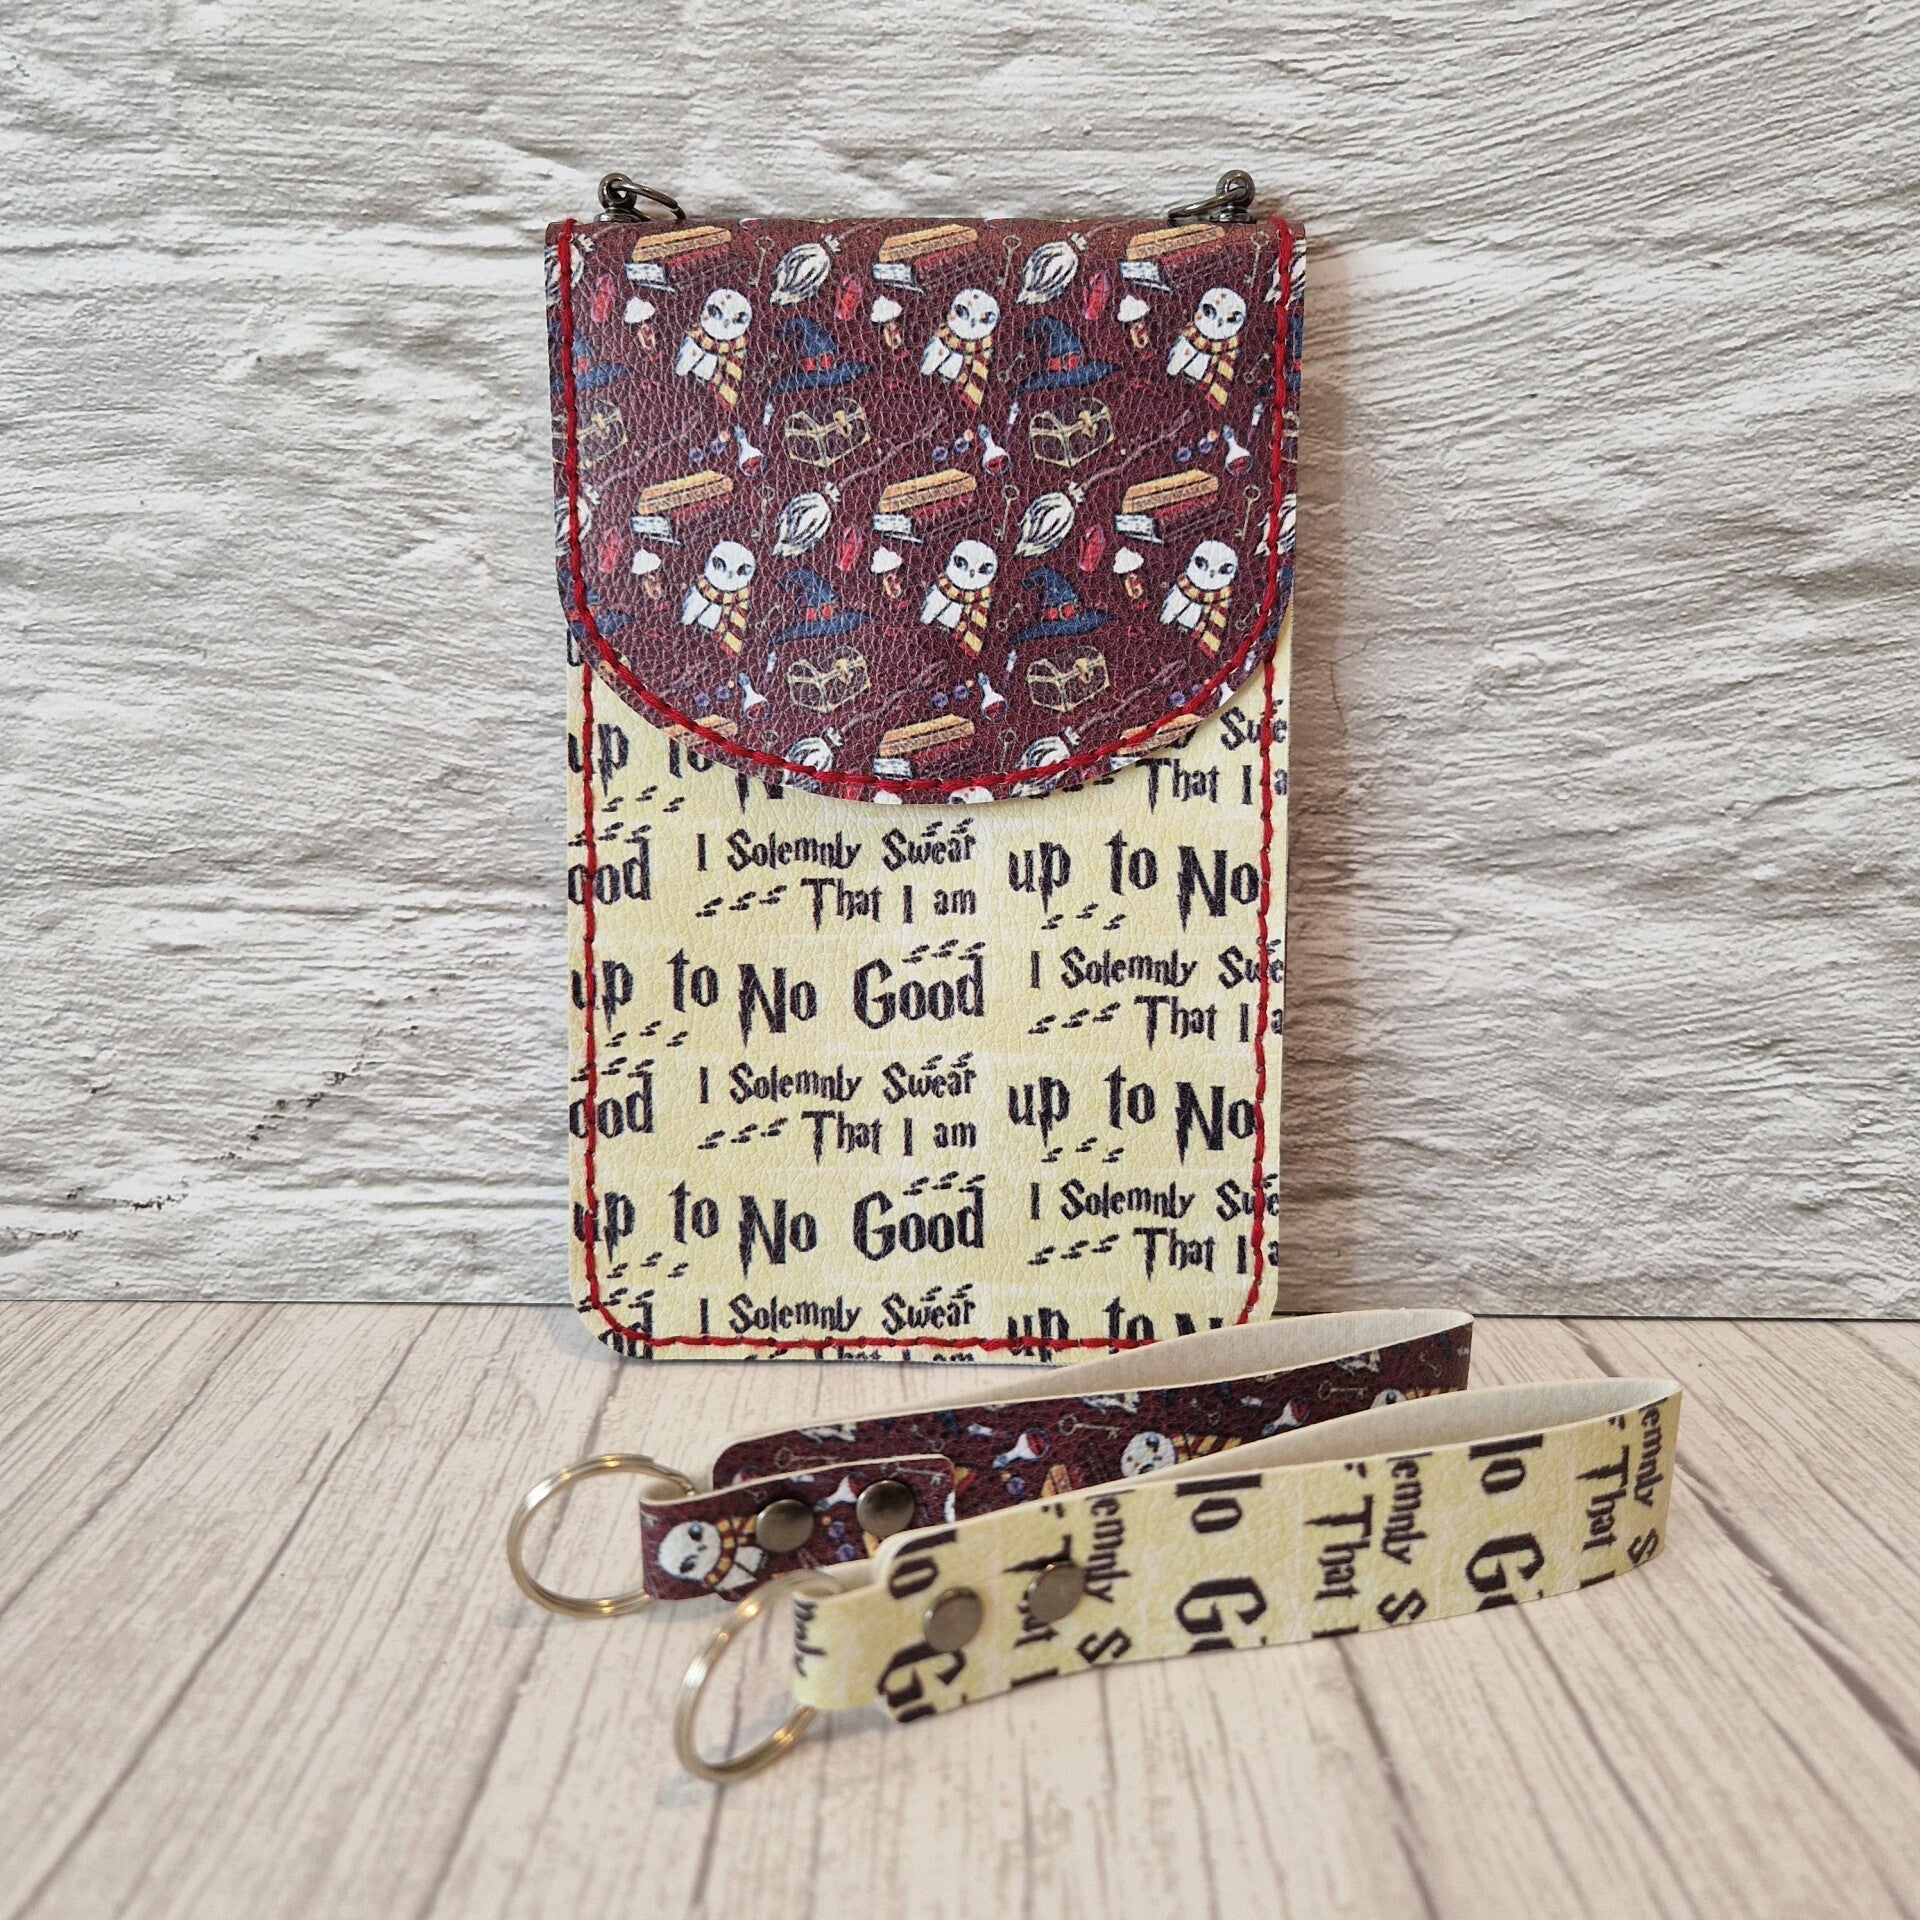 Swe
up to N
That I a
ood I Solemnly Swear up to No
That I am
up to No Good I Solemnly Swe
That I a
ood I Solemnly Swear up to No
That I am
up to No Good I Solemnly Swe
That I a
od I Solemnly Swear up to N
That I am
lo G
emnly S
That I
lo G
lemnly S
That I
lo G
emnly S
That I